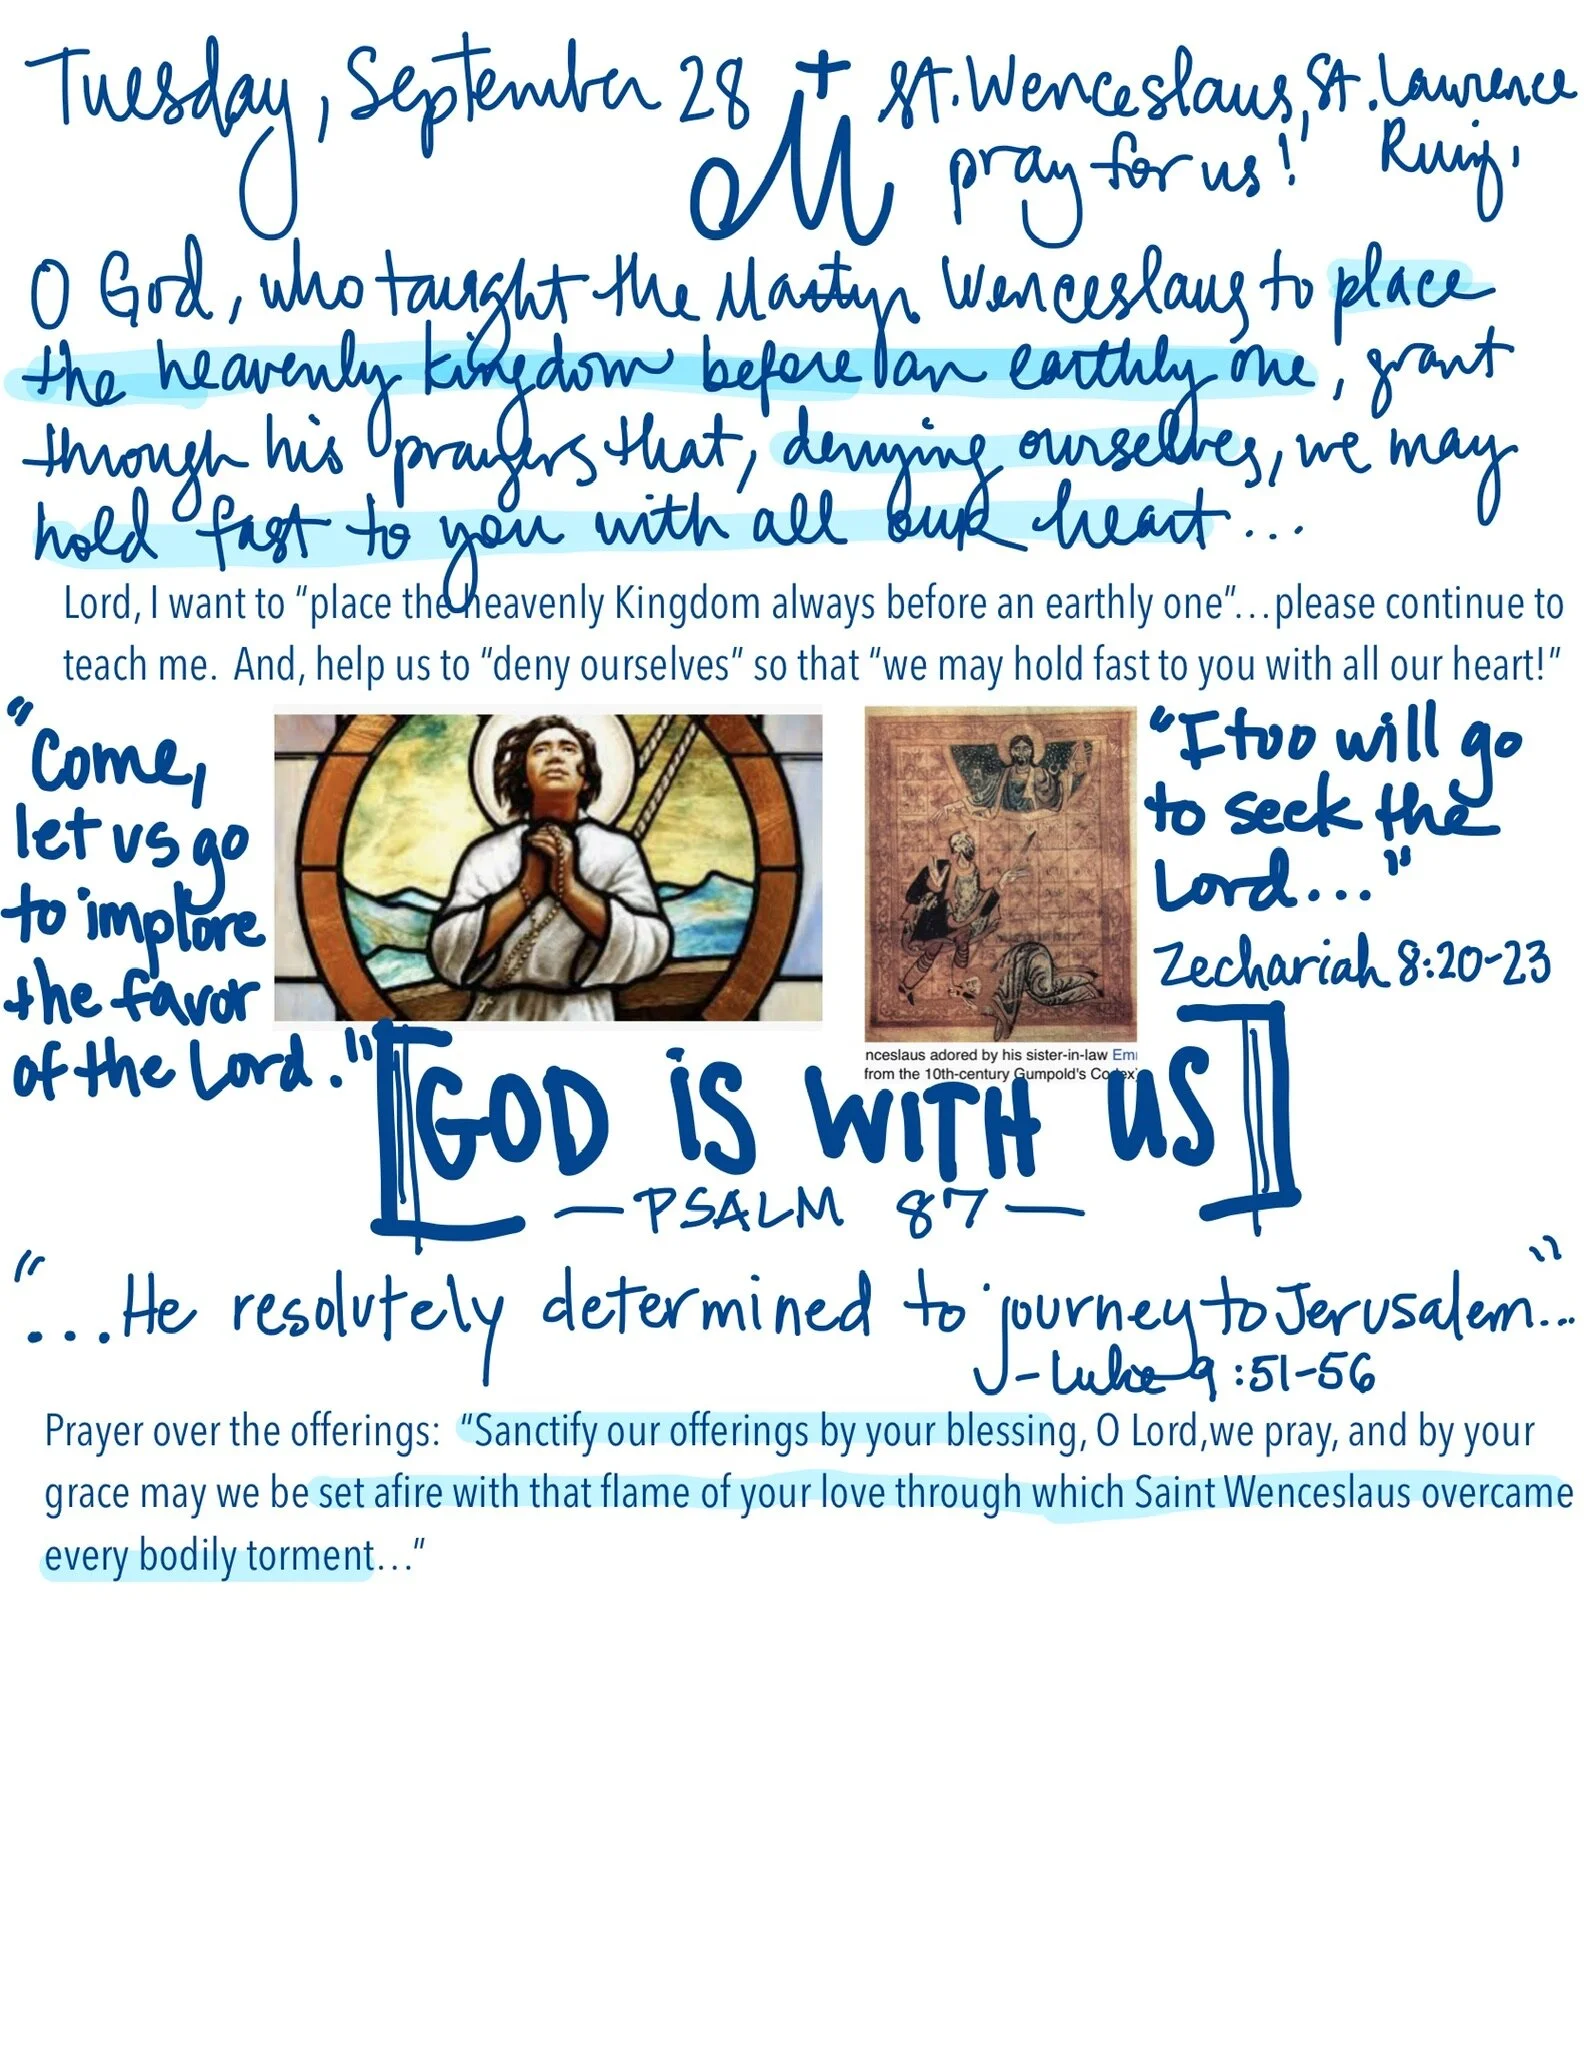 Tuesday, September 28
St. Wenceslaus, St. Lawrence
Ruiz,
pray for us!
O God, who taught the Martyr Wenceslaus to place
the heavenly kingdom before an earthly one, grant
through his prayers that, denying ourselves, we may
hold fast to you with all our heart...
Lord, I want to “place the heavenly Kingdom always before an earthly one”...please continue to
teach me. And, help us to “deny ourselves” so that “we may hold fast to you with all our heart!”
"Come,
let us go
to implore
the favor
of the Lord."
"I too will go
to seek the
Lord..."
Zechariah 8:20-23
nceslaus adored by his sister-in-law Em
from the 10th-century Gumpold's Codex)
[GOD IS WITH US]
—PSALM 87—
"...He resolutely determined to journey to Jerusalem..."
-Luke 9:51-56
Prayer over the offerings: “Sanctify our offerings by your blessing, O Lord,we pray, and by your
grace may we be set afire with that flame of your love through which Saint Wenceslaus overcame
every bodily torment...”